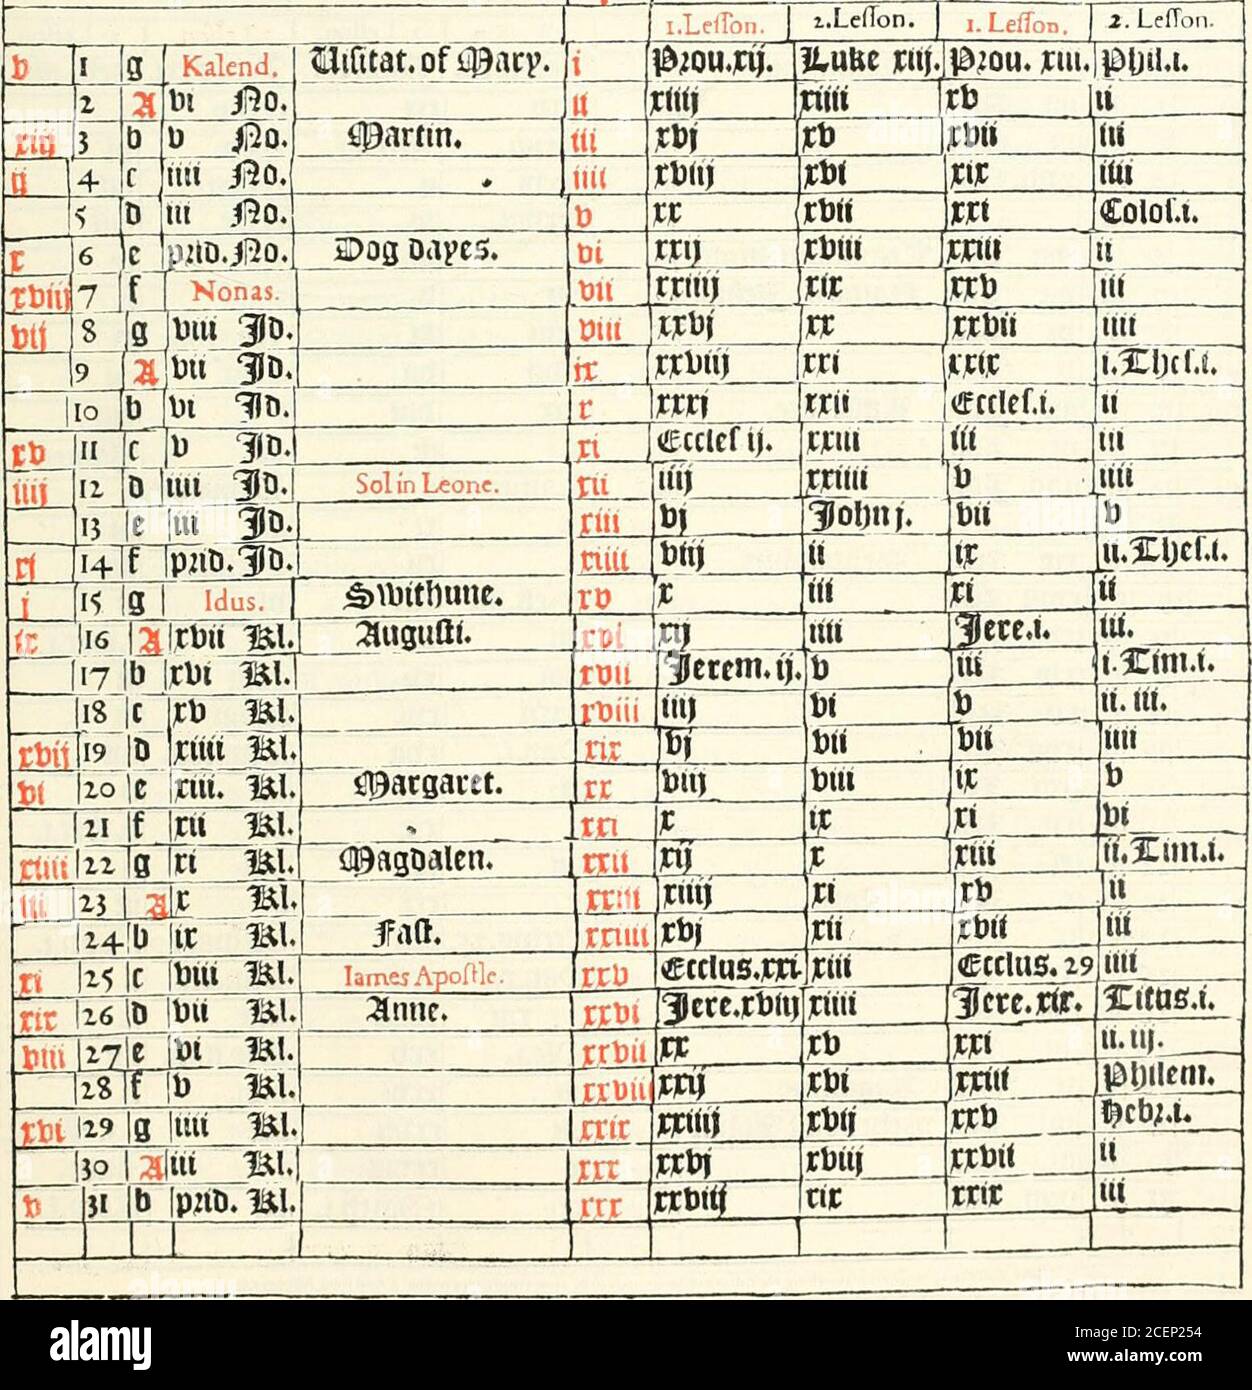 1.Lesson. 2.Lesson. 1. Lesson. 2. Lesson.
v 1 g Kalend. Uisitat. of Mary. i Prou.xij. Luke xiij. Prou. xiii. Phil.i.
2 A vi No. ii xiiij xiiii xv ii
xiij 3 b v No. Martin. iii xvj xv xvii iii
ii 4 c iiii No. iiii xviij xvi xix iiii
5 d iii No. v xx xvii xxi Colos.i.
x 6 e prid. No. Dog dayes. vi xxij xviii xxiii ii
xviij 7 f Nonas. vii xxiiij xix xxv iii
vij 8 g viii Id. viii xxvj xx xxvii iiii
9 A vii Id. ix xxviij xxi xxix i.Thes.i.
10 b vi Id. x xxxj xxii Eccles.i. ii
xv 11 c v Id. xi Eccles ij. xxiii iii iii
iiij 12 d iiii Id. Sol in Leone. xii iiij xxiiii v iiii
13 e iii Id. xiii vj John j. vii v
xi 14 f prid. Id. xiiii viij ii ix ii.Thes.i.
i 15 g Idus. Swithune. xv x iii xi ii
ix 16 A xvii Kl. Augusti. xvi xij iiii Jere.i. iii.
17 b xvi Kl. xvii Jerem. ij. v iii i.Tim.i.
18 c xv Kl. xviii iiij vi v ii. iii.
xvij 19 d xiiii Kl. xix vj vii vii iiii
vi 20 e xiii. Kl. Margaret. xx viij viii ix v
21 f xii Kl. xxi x ix xi vi
xiiii 22 g xi Kl. Magdalen. xxii xij x xiii ii.Tim.i.
iii 23 A x Kl. xxiii xiiij xi xv ii
24 b ix Kl. Fast. xxiiii xvj xii xvii iii
xi 25 c viii Kl. Iames Apostle. xxv Ecclus.xxi xiii Ecclus. 29 iiii
xix 26 d vii Kl. Anne. xxvi Jere.xviij xiiii Jere. xix. Titus.i.
viii 27 e vi Kl. xxvii xx xv xxi ii. iij.
28 f v Kl. xxviii xxij xvi xxiii Philem.
xvi 29 g iiii Kl. xxix xxiiij xvij xxv Hebr.i.
30 A iii Kl. xxx xxvj xviij xxvii ii
v 31 b prid. Kl. xxx xxviij xix xxix iii
alamy
Image ID: 2CEP254
www.alamy.com